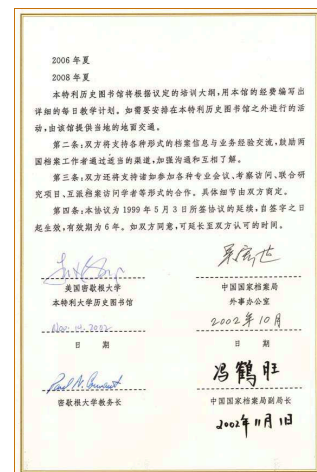 2006 年夏
2008 年夏
本特利历史图书馆将根据议定的培训大纲,用本馆的经费编写出
详细的每日教学计划。如需要安排在本特利历史图书馆之外进行的活
动,由该馆提供当地的地面交通。
第二条:双方将支持各种形式的档案信息与业务经验交流,鼓励两
国档案工作者通过适当的渠道,加强沟通和互相了解。
第三条:双方还将支持诸如参加各种专业会议、考察访问、联合研
究项目、互派档案访问学者等形式的合作。具体细节由双方商定。
第四条:本协议为 1999 年 5 月 3 日所签协议的延续,自签字之日
起生效,有效期为 6 年。如双方同意,可延长至双方认可的时间。
美国密歇根大学
本特利大学历史图书馆
Nov. 14, 2002
日 期
密歇根大学教务长
中国国家档案局
外事办公室
2002年10月
日 期
冯鹤旺
中国国家档案局副局长
2002年11月1日